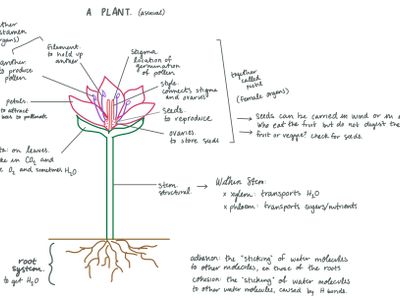 A PLANT. (asexual)
ther
stamen
organs)
filament.
to hold up
anther
anther.
to produce
pollen
petals.
to attract
bees to pollinate
stigma
location of
germination
of pollen
style.
connects stigma
and ovaries
seeds.
to reproduce
ovaries.
to store seeds
together
called
pistil
(female organs)
→ seeds can be carried in wind or in a
who eat the fruit but do not digest the
→ fruit or veggie? check for seeds.
on leaves.
take in CO2 and
O2 and sometimes H2O
stem.
structural.
→ Within Stem:
x xylem: transports H2O
x phloem: transports sugars/nutrients.
root
system.
to get H2O
adhesion: the "sticking" of water molecules
to other molecules, ex those of the roots
cohesion: the "sticking" of water molecules
to other water molecules, caused by H bonds.